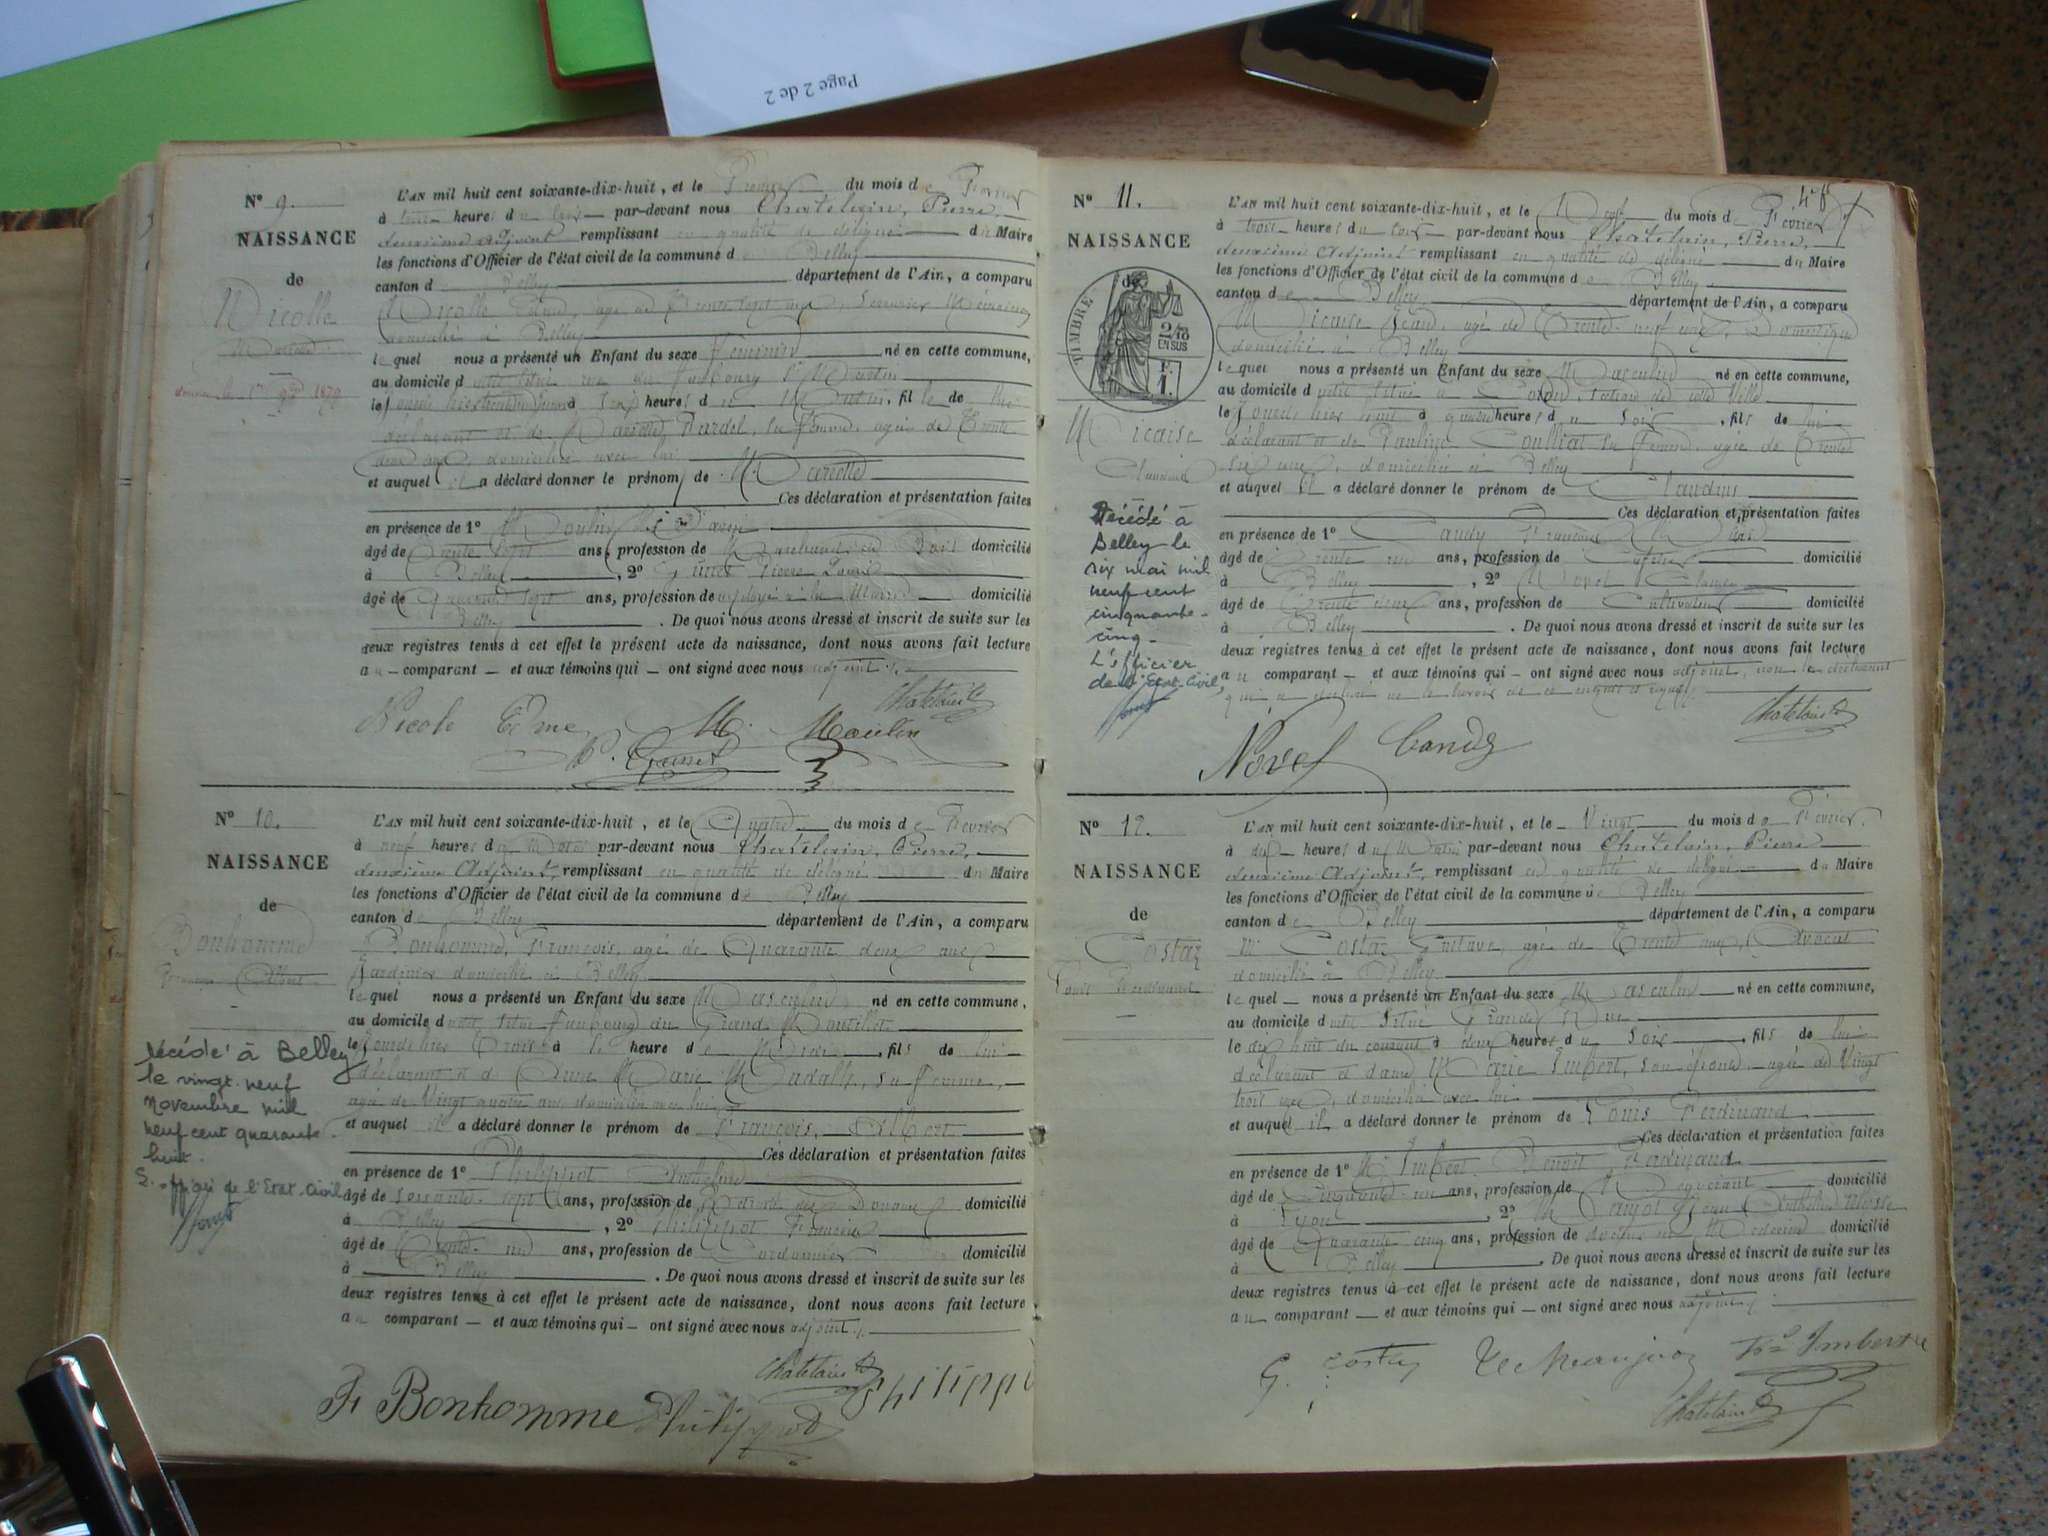 Page 2 de 2
N° 9.
NAISSANCE
de
Nicolle
1879
L'AN mil huit cent soixante-dix-huit, et le Premier du mois de Février
à trois heures du soir par-devant nous Chatelain, Pierre,
deuxième adjoint remplissant en qualité de délégué du Maire
les fonctions d'Officier de l'état civil de la commune de Belley
canton de Belley département de l'Ain, a comparu
Nicolle âgé de trente sept ans,
domicilié à Belley
lequel nous a présenté un Enfant du sexe Féminin né en cette commune,
au domicile d rue du Faubourg St Martin
le heures du matin, fille de lui
déclarant et de Mariette Dardel, sa femme, agée de trente
deux ans, domiciliée avec lui
et auquel il a déclaré donner le prénom de Mariette
Ces déclaration et présentation faites
en présence de 1° Moulin
âgé de trente sept ans, profession de Marchand de Bois domicilié
à Belley, 2° Pierre Louis
âgé de quarante sept ans, profession de employé à la Mairie domicilié
Belley. De quoi nous avons dressé et inscrit de suite sur les
deux registres tenus à cet effet le présent acte de naissance, dont nous avons fait lecture
au comparant et aux témoins qui ont signé avec nous adjoint.
Chatelain
Nicole Edme M. Moulin
N° 10.
NAISSANCE
de
Bonhomme
François Albert
Décédé à Belley
le vingt-neuf
novembre mil
neuf cent quarante
huit.
de l'Etat-Civil
L'AN mil huit cent soixante-dix-huit, et le Quatre du mois de Février
à neuf heures du Matin par-devant nous Chatelain, Pierre,
deuxième Adjoint remplissant en qualité de délégué du Maire
les fonctions d'Officier de l'état civil de la commune de Belley
canton de Belley département de l'Ain, a comparu
Bonhomme, François, agé de Quarante deux ans
Jardinier domicilié à Belley
lequel nous a présenté un Enfant du sexe Masculin né en cette commune,
au domicile d Faubourg du Grand
le jour d'hier trois à heure d , fils de lui
déclarant et de Anne Marie sa femme,
agée de Vingt quatre ans domiciliée avec lui
et auquel il a déclaré donner le prénom de François, Albert
Ces déclaration et présentation faites
en présence de 1° Philippot Anthelme
âgé de soixante-sept ans, profession de Retraité des Douanes domicilié
à Belley, 2° Philippot François
âgé de trente-un ans, profession de Cordonnier domicilié
à Belley. De quoi nous avons dressé et inscrit de suite sur les
deux registres tenus à cet effet le présent acte de naissance, dont nous avons fait lecture
au comparant et aux témoins qui ont signé avec nous adjoint.
Chatelain
F. Bonhomme Philippot
N° 11.
NAISSANCE
de
TIMBRE
2/10
EN SUS
Micaise
Claudius
Décédé à
Belley le
six mai mil
neuf cent
cinquante-
cinq.
L'officier
de l'Etat-Civil,
L'AN mil huit cent soixante-dix-huit, et le Neuf du mois de Février
à trois heures du soir par-devant nous Chatelain, Pierre,
deuxième Adjoint remplissant en qualité de délégué du Maire
les fonctions d'Officier de l'état civil de la commune de Belley
canton de Belley département de l'Ain, a comparu
Micaise Jean, agé de trente-neuf ans, Domestique
domicilié à Belley
lequel nous a présenté un Enfant du sexe Masculin né en cette commune,
au domicile d situé à section de cette Ville
le jour d'hier à quatre heures du soir, fils de lui
déclarant et de Pauline Coulliat sa femme, agée de trente
six ans, domiciliée à Belley
et auquel il a déclaré donner le prénom de Claudius
Ces déclaration et présentation faites
en présence de 1° Candy François
âgé de trente un ans, profession de Cafetier domicilié
à Belley, 2° Novel
âgé de trente deux ans, profession de Cultivateur domicilié
à Belley. De quoi nous avons dressé et inscrit de suite sur les
deux registres tenus à cet effet le présent acte de naissance, dont nous avons fait lecture
au comparant et aux témoins qui ont signé avec nous adjoint, non le déclarant
qui a déclaré ne le savoir de ce enquis et requis.
Chatelain
Novel Candy
N° 12.
NAISSANCE
de
Costaz
Louis Ferdinand
L'AN mil huit cent soixante-dix-huit, et le Vingt du mois de Février.
à dix heures du Matin par-devant nous Chatelain, Pierre
deuxième Adjoint, remplissant en qualité de délégué du Maire
les fonctions d'Officier de l'état civil de la commune de Belley
canton de Belley département de l'Ain, a comparu
M. Costaz Gustave, agé de trente ans, Avocat
domicilié à Belley
lequel nous a présenté un Enfant du sexe Masculin né en cette commune,
au domicile d situé Grande Rue
le dix huit du courant à deux heures du soir, fils de lui
déclarant et dame Marie Imbert, son épouse, agée de Vingt
trois ans, domiciliée avec lui
et auquel il a déclaré donner le prénom de Louis Ferdinand
Ces déclaration et présentation faites
en présence de 1° M. Imbert Benoit Ferdinand
âgé de Cinquante-un ans, profession de Négociant domicilié
à Lyon, 2° M
âgé de Quarante cinq ans, profession de docteur en Médecine domicilié
à Belley. De quoi nous avons dressé et inscrit de suite sur les
deux registres tenus à cet effet le présent acte de naissance, dont nous avons fait lecture
au comparant et aux témoins qui ont signé avec nous adjoint.
G. Costaz Imbert
Chatelain